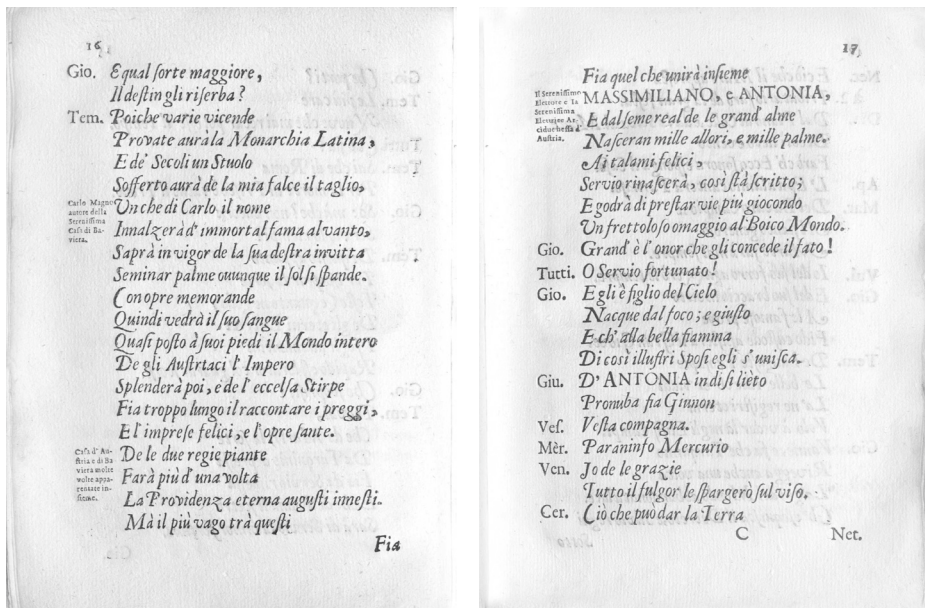 16
Gio. E qual sorte maggiore,
Il destin gli riserba?
Tem. Poiche varie vicende
Provate aurà la Monarchia Latina,
E de' Secoli un Stuolo
Sofferto aurà de la mia falce il taglio,
Carlo Magno
autore della
Serenissima
Casa di Ba-
viera.
Un che di Carlo il nome
Innalzerà d' immortal fama al vanto,
Saprà in vigor de la sua destra invitta
Seminar palme ovunque il sol si spande.
Con opre memorande
Quindi vedrà il suo sangue
Quasi posto à suoi piedi il Mondo intero
De gli Austrtaci l' Impero
Splenderà poi, e de l' eccelsa Stirpe
Fia troppo lungo il raccontare i preggi,
E l' imprese felici, e l' opre sante.
Casa d' Au-
stria e di Ba
viera molte
volte appa-
rentate in-
sieme.
De le due regie piante
Farà più d' una volta
La Providenza eterna augusti innesti.
Mà il più vago trà questi
Fia
17
Fia quel che unirà insieme
Il Serenissimo
Elettore e la
Serenissima
Elettrice Ar-
ciduchessa d'
Austria.
MASSIMILIANO, e ANTONIA,
E dal seme real de le grand' alme
Nasceran mille allori, e mille palme.
Ai talami felici,
Servio rinascerà, così stà scritto;
E godrà di prestar vie più giocondo
Un frettoloso omaggio al Boico Mondo.
Gio. Grand' è l' onor che gli concede il fato!
Tutti. O Servio fortunato!
Gio. Egli è figlio del Cielo
Nacque dal foco; e giusto
E ch' alla bella fiamma
Di così illustri Sposi egli s' unisca.
Giu. D' ANTONIA in dì sì lièto
Pronuba fia Giunon
Ves. Vesta compagna.
Mèr. Paraninfo Mercurio
Ven. Jo de le grazie
Tutto il fulgor le spargerò sul viso.
Cer. Ciò che può dar la Terra
C Net.